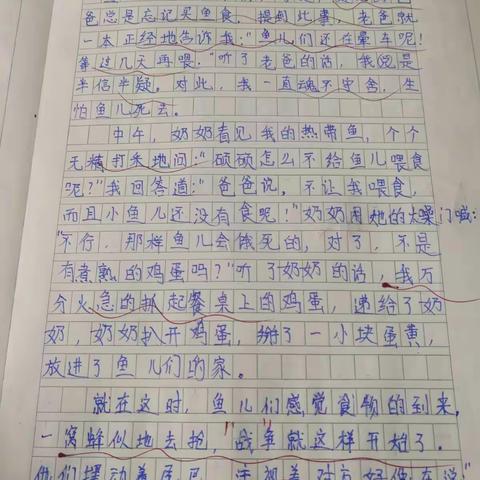 爸总是忘记买鱼食。提到此事，老爸就
一本正经地告诉我："鱼儿们还在晕车呢！
等过几天再喂。"听了老爸的话，我总是
半信半疑。对此，我一直魂不守舍，生
怕鱼儿死去。
中午，奶奶看见我的热带鱼，个个
无精打采地问："硕硕怎么不给鱼儿喂食
呢？"我回答道："爸爸说，不让我喂食，
而且小鱼儿还没有食呢！"奶奶用她的大嗓门喊：
"不行，那样鱼儿会饿死的，对了，不是
有煮熟的鸡蛋吗？"听了奶奶的话，我万
分火急的抓起餐桌上的鸡蛋，递给了奶
奶，奶奶扒开鸡蛋，掰了一小块蛋黄，
放进了鱼儿们的家。
就在这时，鱼儿们感觉食物的到来，
一窝蜂似地去抢，"战争"就这样开始了。
他们摆动着尾巴，